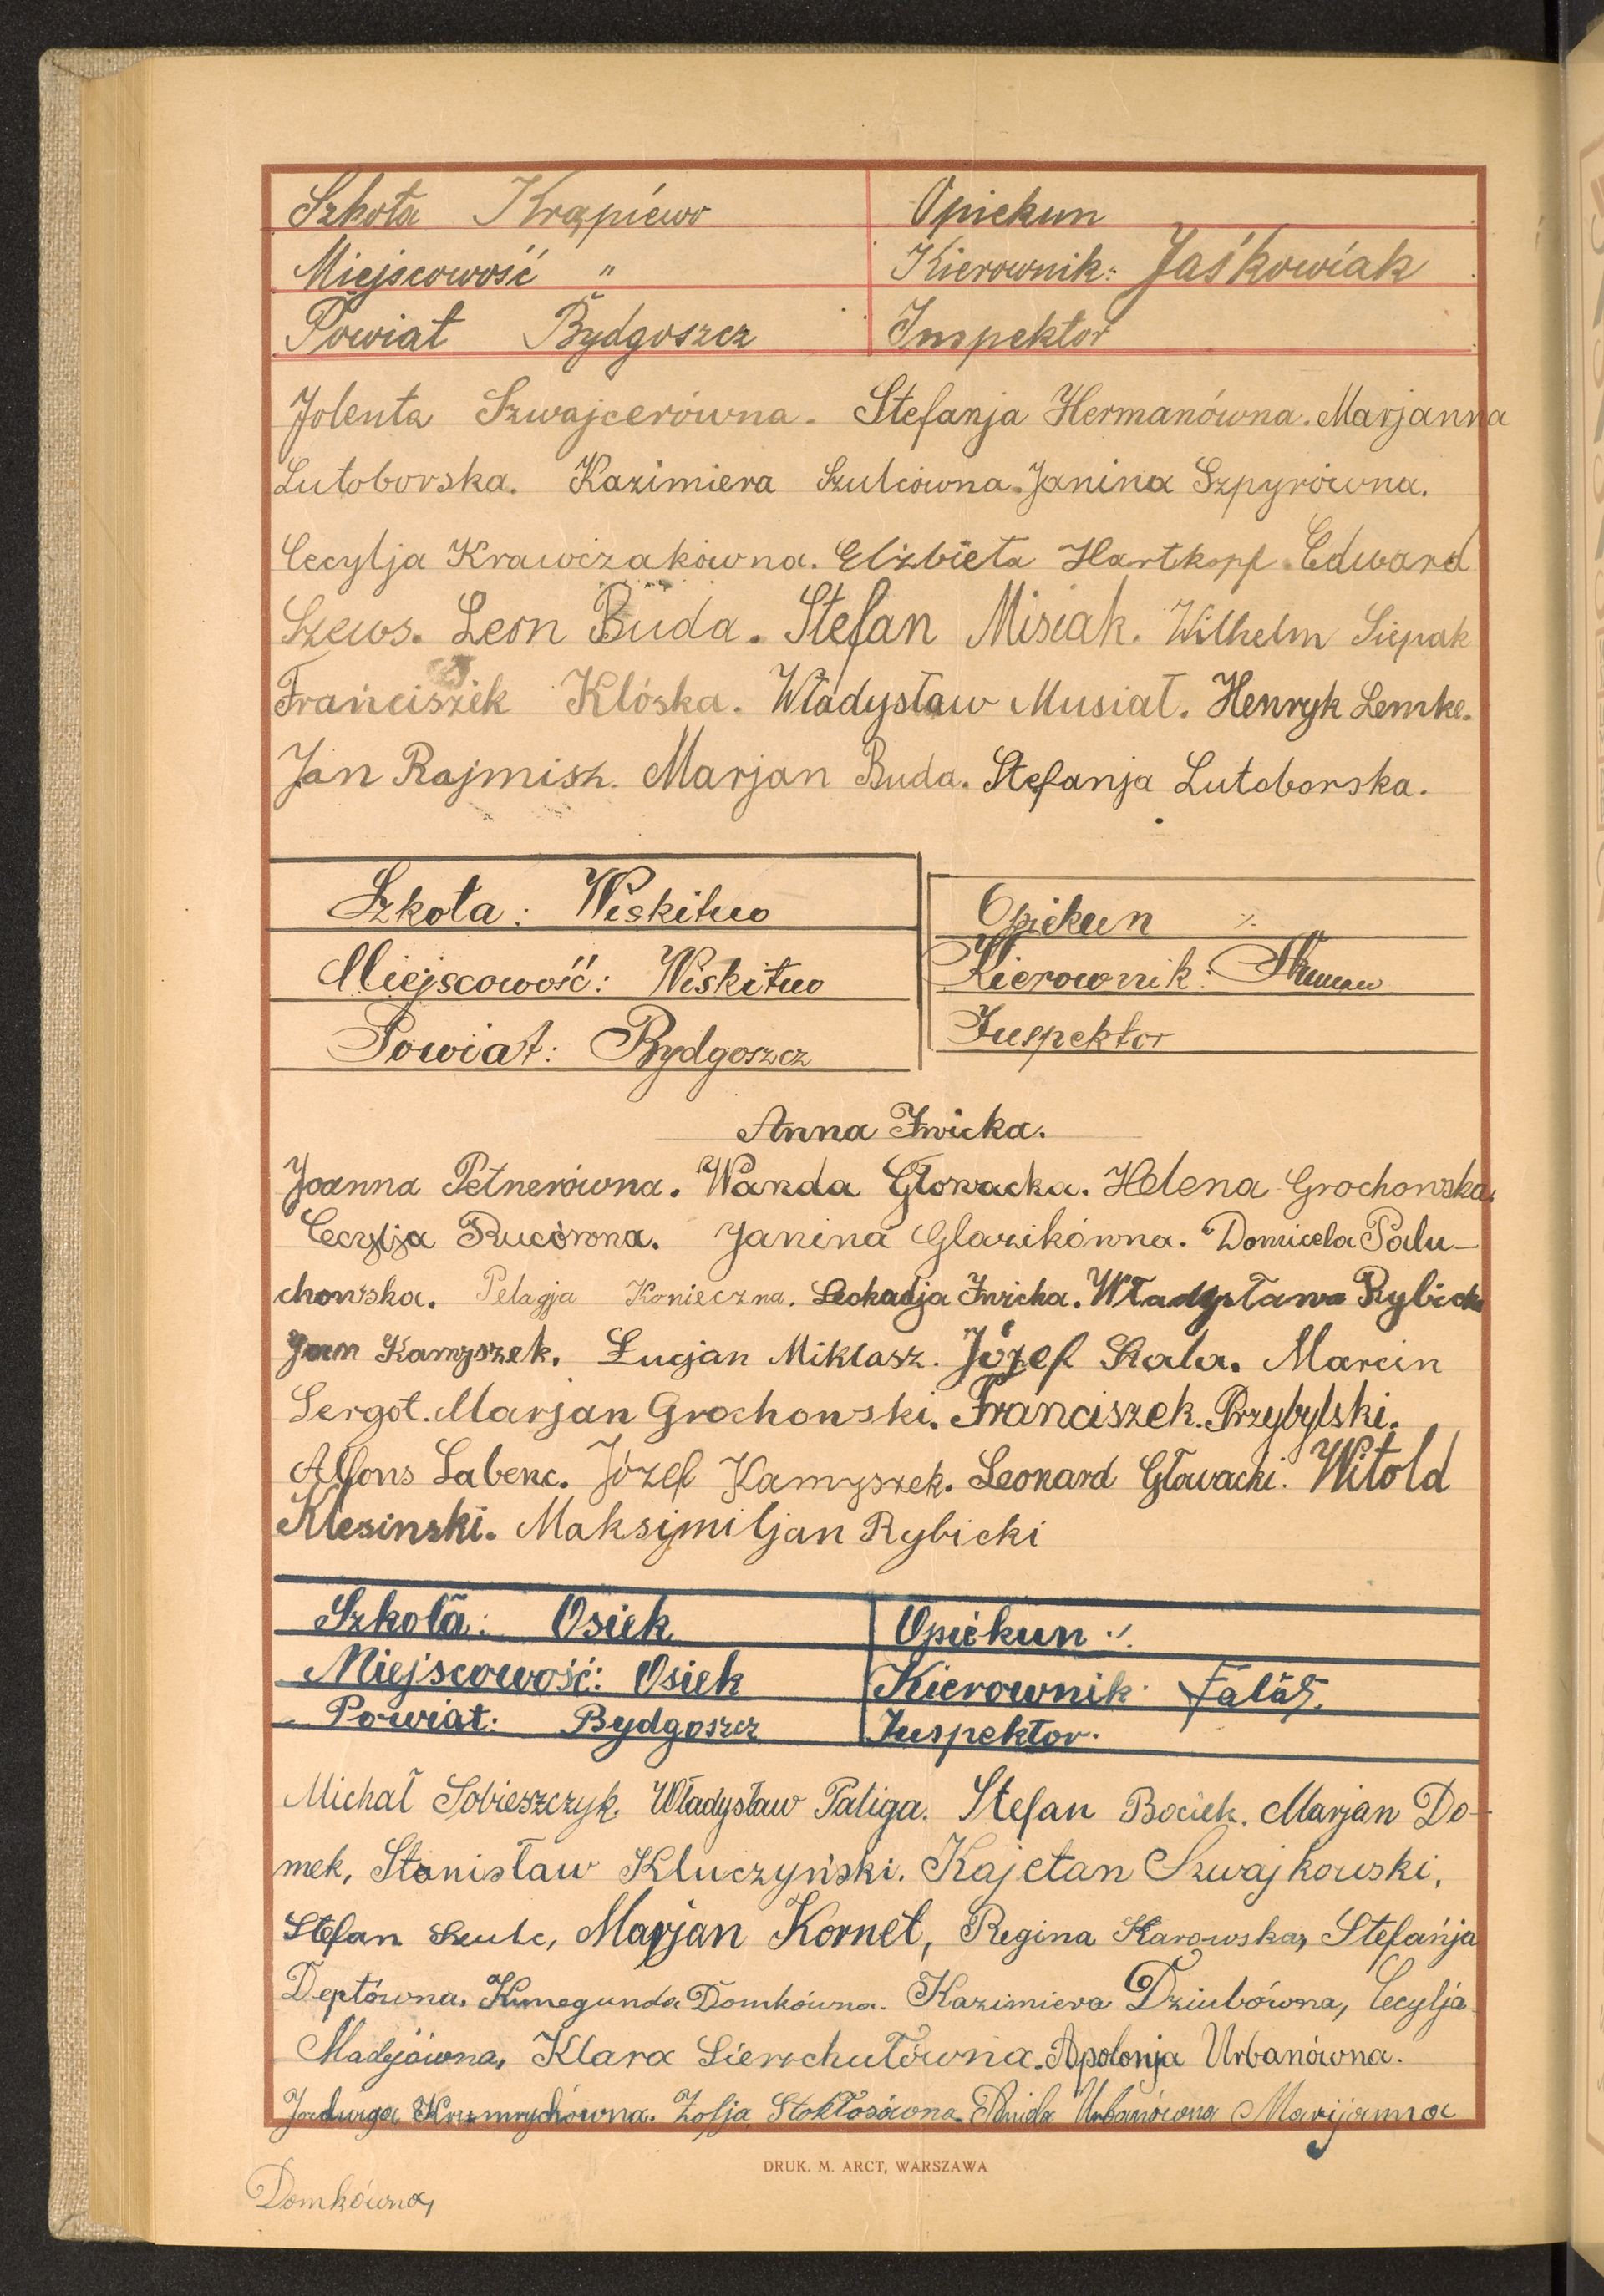 Szkoła Krąpiewo Opiekun
Miejscowość " Kierownik: Jaśkowiak
Powiat Bydgoszcz Inspektor
Jolenta Szwajcerówna. Stefanja Hermanówna. Marjanna
Lutoborska. Kazimiera Szulcówna. Janina Szpyrówna.
Cecylja Krawczakówna. Elżbieta Hartkopf. Edward
Szews. Leon Buda. Stefan Misiak. Wilhelm Siepak
Franciszek Klóska. Władysław Musiał. Henryk Lemke.
Jan Rajmisz. Marjan Buda. Stefanja Lutoborska.
Szkoła: Wiskitno Opiekun ./.
Miejscowość: Wiskitno Kierownik:
Powiat: Bydgoszcz Inspektor
Anna Zwicka.
Joanna Petnerówna. Wanda Głowacka. Helena Grochowska.
Cecylja Rucówna. Janina Glazikówna. Domicela Palu-
chowska. Pelagja Konieczna. Leokadja Zwicka. Władysława Rybicka
Jan Kamyszek. Lucjan Miklasz. Józef Skala. Marcin
Sergot. Marjan Grochowski. Franciszek. Przybylski.
Alfons Labenc. Józef Kamyszek. Leonard Głowacki. Witold
Klesinski. Maksymiljan Rybicki
Szkoła: Osiek Opiekun ./.
Miejscowość: Osiek Kierownik
Powiat: Bydgoszcz Inspektor.
Michał Sobieszczyk. Władysław Paliga. Stefan Bociek. Marjan Do-
mek, Stanisław Kluczyński. Kajetan Szwajkowski,
Stefan Szulc, Marjan Kornet, Regina Karowska, Stefanja
Deptówna. Kunegunda Domkówna. Kazimiera Dziubówna, Cecylja
Madejówna, Klara Sierchułówna. Apolonja Urbanówna.
Jadwiga Zofja Stokłosówna. Urbanówna Marijanna
DRUK. M. ARCT, WARSZAWA
Domkówna,